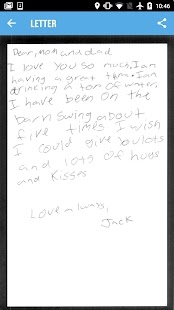 10:46
LETTER
Dear, mom and dad
I love you so much, I am
having a great time. I am
drinking a ton of water.
I have been on the
barn swing about
five times I wish
I could give you lots
and lots of hugs
and kisses
Love always,
Jack